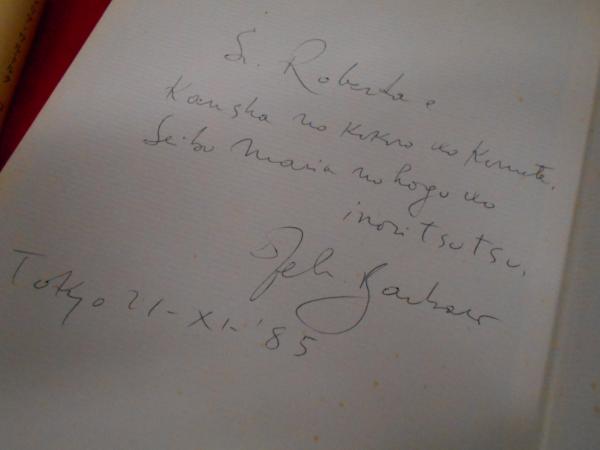 Sr. Roberta e
Kansha no kokoro wo komete,
Seibo Maria no hogo wo
inori tsutsu.
Tokyo 21-XI-'85